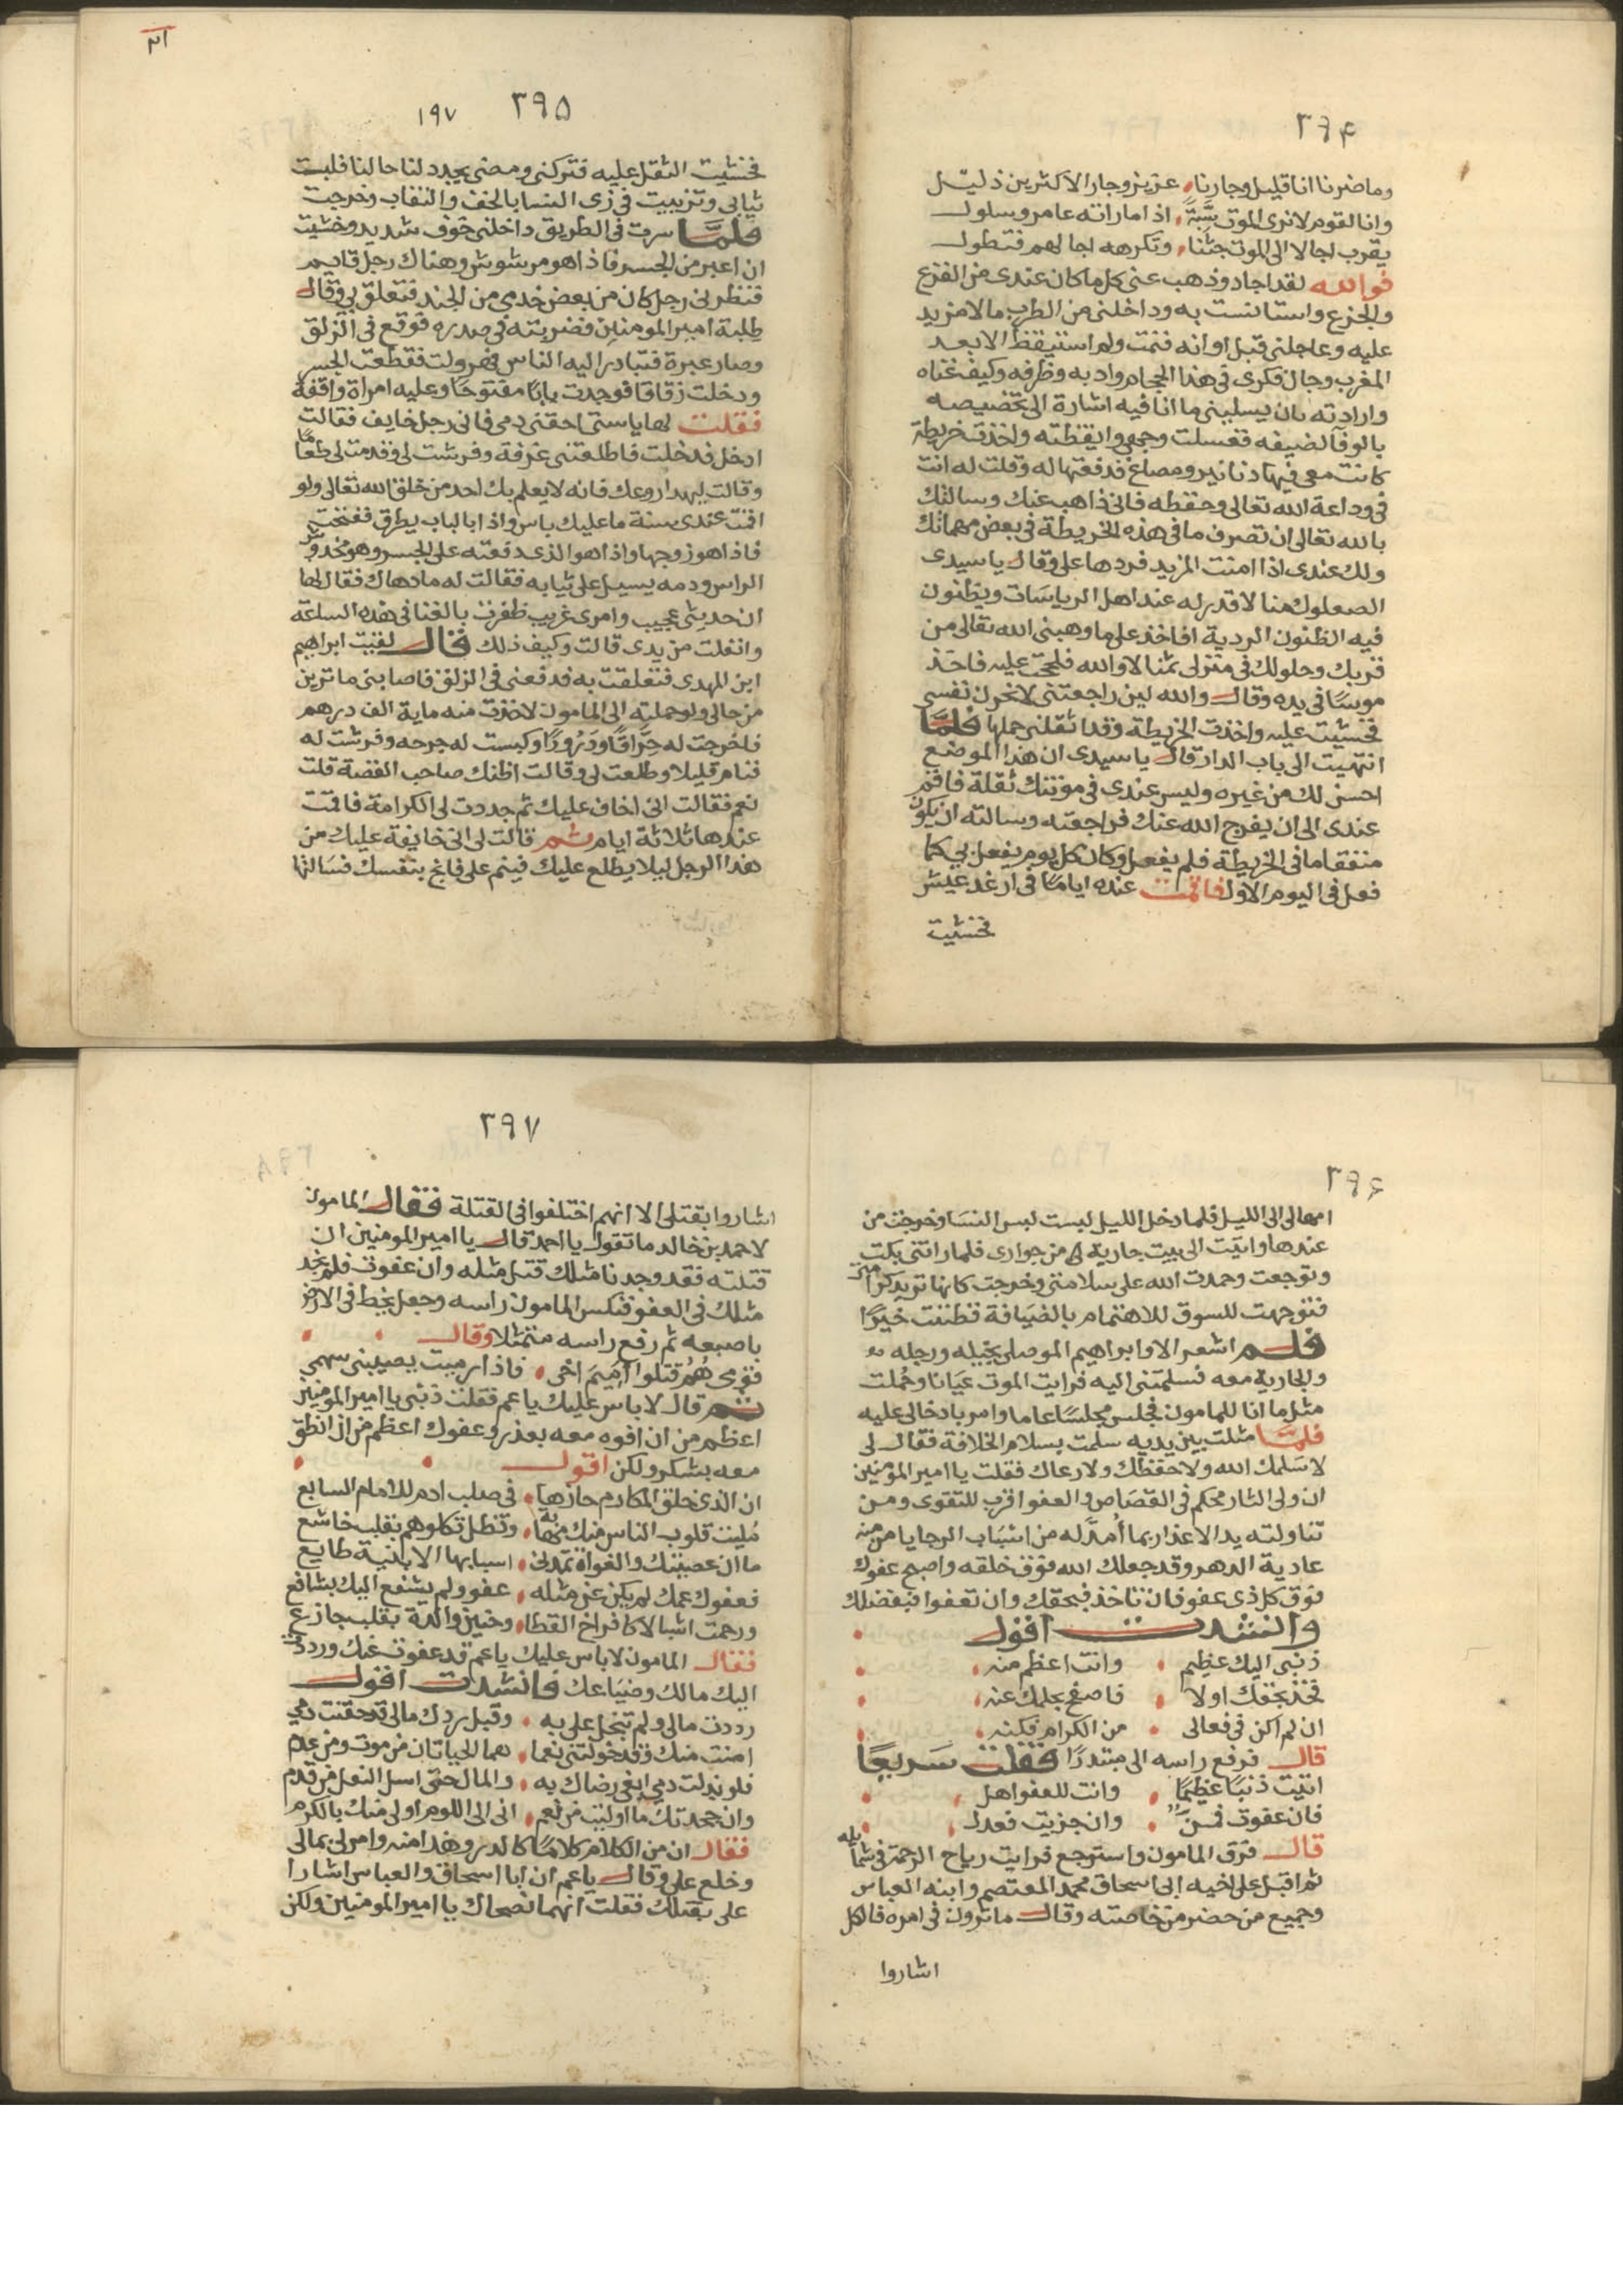 ٣٩٤
وما ضرنا انا قليل وجارنا عزيز وجار الاكثرين ذليل
وانا لقوم لا نرى الموت سبة اذا ما راته عامر وسلول
يقرب اجالا الى الموت حبنا وتكرهه اجالهم فتطول
فوالله لقد اجاد وذهب عنى كل ما كان عندى من الفزع
والجزع واستانست به وداخلنى من الطرب ما لا مزيد
عليه وعاجلنى قبل اوانه فنمت ولم استيقظ الا بعد
المغرب وجال فكرى فى هذا الحجام وادبه وظرفه وكيف غناه
وارادته بان يسلينى مما انا فيه اشارة الى تخصيصه
بالوفا لضيفه فغسلت وجهى وايقظته واخذت خريطة
كانت معى فيها دنانير ومصاغ فدفعتها له وقلت له انت
فى وداعة الله تعالى وحفظه فانى ذاهب عنك وسالتك
بالله تعالى ان تصرف ما فى هذه الخريطة فى بعض مهماتك
ولك عندى اذا امنت المزيد فردها على وقال يا سيدى
الصعلوك منا لا قدر له عند اهل الرياسات ويظنون
فيه الظنون الردية افاخذ على ما وهبنى الله تعالى من
قربك وحلولك فى منزلى ثمنا لا والله فلححت عليه فاخذ
موسا فى يده وقال والله لين راجعتنى لانحرن نفسى
فخشيت عليه واخذت الخريطة وقد اثقلنى حملها فلما
انتهيت الى باب الدار قال يا سيدى ان هذا الموضع
احسن لك من غيره وليس عندى فى مونتك ثقلة فاقم
عندى الى ان يفرج الله عنك فراجعته وسالته ان يكون
منفقا ما فى الخريطة فلم يفعل وكان كل يوم يفعل بى كما
فعل فى اليوم الاول فاقمت عنده اياما فى ارغد عيش
فخشيت
٣٩٥ ١٩٧
فخشيت الثقل عليه فتركنى ومضى يجدد لنا حالنا فلبست
ثيابى وتزييت فى زى النسا بالخف والنقاب وخرجت
فلما سرت فى الطريق داخلنى خوف شديد وخشيت
ان اعبر من الجسر فاذا هو مرشوش وهناك رجل قايم
فنظرنى رجل كان من بعض خدمى من الجند فتعلق بى وقال
طلبة امير المومنين فضربته فى صدره فوقع فى الزلق
وصار عبرة فتبادر اليه الناس فهرولت فقطعت الجسر
ودخلت زقاقا فوجدت بابا مفتوحا وعليه امراة واقفة
فقلت لها يا ستى احقنى دمى فانى رجل خايف فقالت
ادخل فدخلت فاطلعتنى غرفة وفرشت لى وقدمت لى طعاما
وقالت ليهدا روعك فانه لا يعلم بك احد من خلق الله تعالى ولو
اقمت عندى سنة ما عليك باس واذا بالباب يطرق ففتحت
فاذا هو زوجها واذا هو الذى دفعته على الجسر وهو مخدوش
الراس ودمه يسيل على ثيابه فقالت له ما دهاك فقال لها
ان حديثى عجيب وامرى غريب ظفرت بالغنا فى هذه الساعة
وانفلت من يدى قالت وكيف ذلك قال لقيت ابراهيم
ابن المهدى فتعلقت به فدفعنى فى الزلق فاصابنى ما ترين
من حالى ولو حملته الى المامون لاخذت منه ماية الف درهم
فاخرجت له حراقا وذرورا وكبست له جرحه وفرشت له
فنام قليلا وطلعت لى وقالت اظنك صاحب القصة قلت
نعم فقالت انى اخاف عليك ثم جددت لى الكرامة فاقمت
عندها ثلاثة ايام ثم قالت لى انى خايفة عليك من
هذا الرجل ليلا يطلع عليك فينم على فانج بنفسك فسالتها
٣٩٦
امهالى الى الليل فلما دخل الليل لبست لبس النسا وخرجت من
عندها واتيت الى بيت جارية لى من جوارى فلما راتنى بكت
وتوجعت وحمدت الله على سلامتى وخرجت كانها تريد كرامتى
فتوجهت للسوق للاهتمام بالضيافة فظننت خيرا
فلم اشعر الا وابراهيم الموصلى بخيله ورجله
والجارية معه فسلمتنى اليه فرايت الموت عيانا وحملت
مثل ما انا للمامون فجلس مجلسا عاما وامر بادخالى عليه
فلما مثلت بين يديه سلمت بسلام الخلافة فقال لى
لا سلمك الله ولا حفظك ولا رعاك فقلت يا امير المومنين
ان ولى الثار محكم فى القصاص والعفو اقرب للتقوى ومن
تناولته يد الاعذار بما امد له من اسباب الرجا يامن من
عادية الدهر وقد جعلك الله فوق خلقه واصبح عفوك
فوق كل ذى عفو فان تاخذ فبحقك وان تعفوا فبفضلك
وانشدت اقول
ذنبى اليك عظيم وانت اعظم منه
فخذ بحقك اولا فاصفح بحلمك عنه
ان لم اكن فى فعالى من الكرام فكنه
قال فرفع راسه الى مبتدرا فقلت سريعا
اتيت ذنبا عظيما وانت للعفو اهل
فان عفوت فمن وان جزيت فعدل
قال فرق المامون واسترجع فرايت رياح الرحمة فى شمايله
ثم اقبل على اخيه ابى اسحاق محمد المعتصم وابنه العباس
وجميع من حضر من خاصته وقال ما ترون فى امره فالكل
اشاروا
٣٩٧
اشاروا بقتلى الا انهم اختلفوا فى القتلة فقال المامون
لاحمد بن خالد ما تقول يا احمد قال يا امير المومنين ان
قتلته فقد وجدنا مثلك قتل مثله وان عفوت فلم نجد
مثلك فى العفو فنكس المامون راسه وجعل يخط فى الارض
باصبعه ثم رفع راسه متمثلا وقال
قومى هم قتلوا اميم اخى فاذا رميت يصيبنى سهمى
ثم قال لا باس عليك يا عم فقلت ذنبى يا امير المومنين
اعظم من ان افوه معه بعذر وعفوك اعظم من ان انطق
معه بشكر ولكن اقول
ان الذى خلق المكارم حازها فى صلب ادم للامام السابع
مليت قلوب الناس منك مهابة وتظل تكلوهم بقلب خاشع
ما ان عصيتك والغواة تمدنى اسبابها الا بنية طايع
فعفوك عمك لم يكن عن مثله عفو ولم يشفع اليك بشافع
ورحمت اشبالا كافراخ القطا وحنين والدة بقلب جازع
فقال المامون لا باس عليك يا عم قد عفوت عنك ورددت
اليك مالك وضياعك فانشدت اقول
رددت مالى ولم تبخل على به وقبل ردك مالى قد حقنت دمى
امنت منك وقد خولتنى نعما هما الحياتان من موت ومن عدم
فلو بذلت دمى ابغى رضاك به والمال حتى اسل النعل من قدم
وان جحدتك ما اوليت من نعم انى الى اللوم اولى منك بالكرم
فقال ان من الكلام كلاما كالدر وهذا منه وامر لى بمالى
وخلع على وقال يا عم ان ابا اسحاق والعباس اشارا
على بقتلك فقلت انهما نصحاك يا امير المومنين ولكن